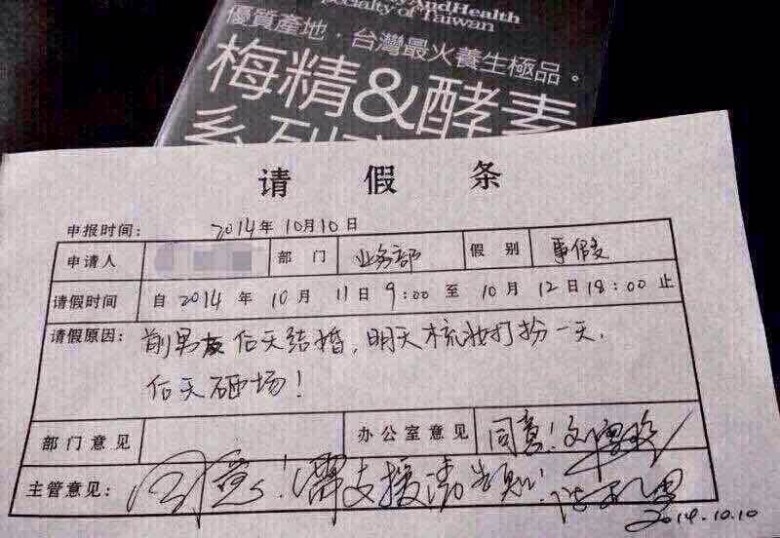 AndHealth
pecialty of Taiwan
優質產地．台灣最火養生極品。
梅精&酵素
系列
请假条
申报时间： 2014年10月10日
申请人 部门 业务部 假别 事假
请假时间 自2014年10月11日9:00至10月12日18:00止
请假原因： 前男友后天结婚，明天梳妆打扮一天，
后天砸场！
部门意见 办公室意见 同意！
主管意见： 同意！需支援请告知！
2014.10.10